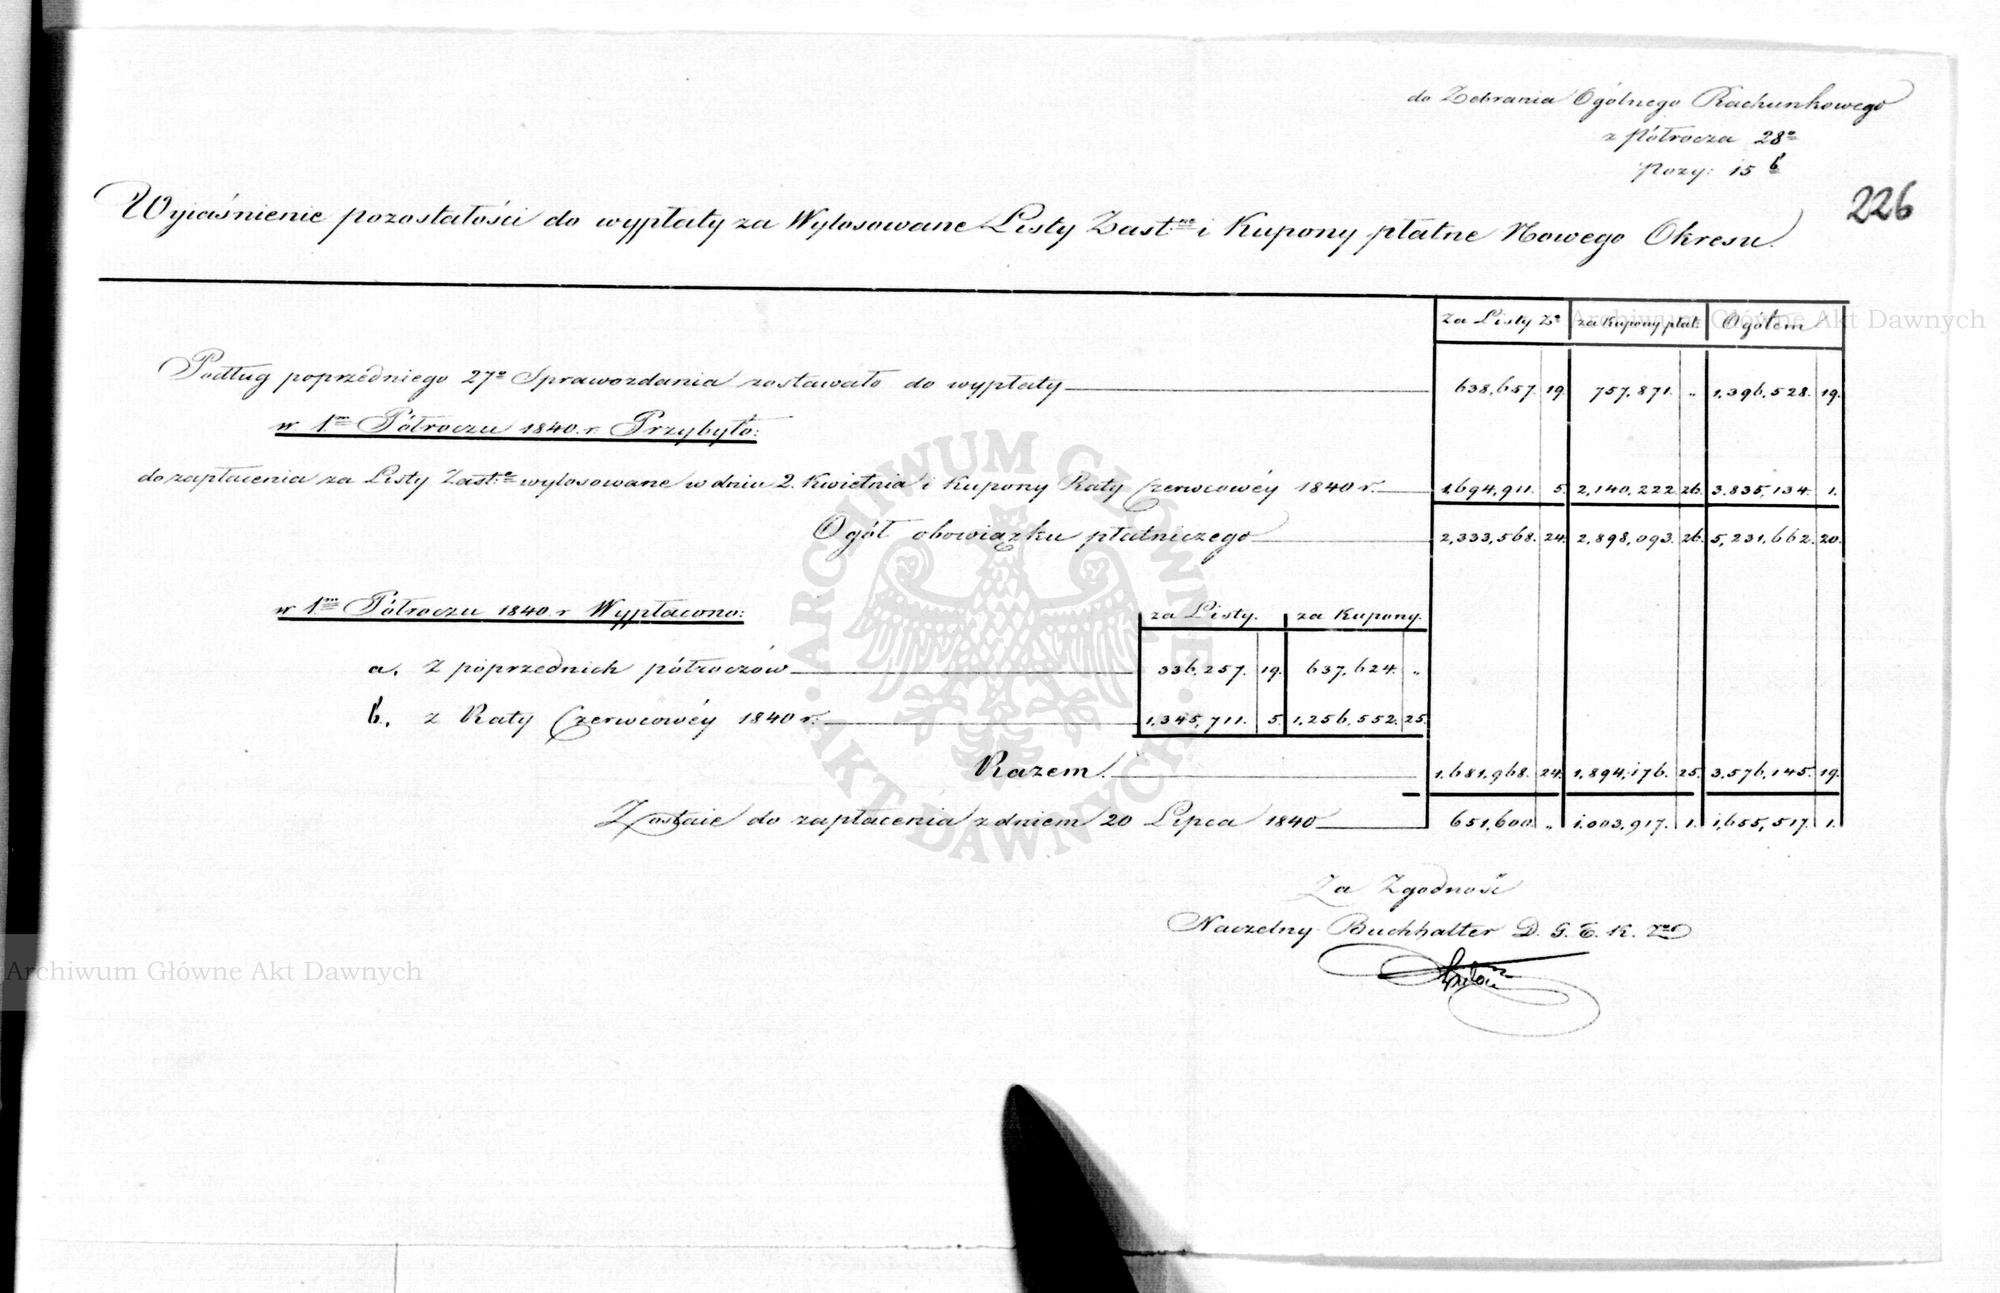 do Zebrania Ogólnego Rachunkowego
z Półrocza 28º
Pozy: 15 b
226
Wyiaśnienie pozostałości do wypłaty za Wylosowane Listy Zast:ne i Kupony płatne Nowego Okresu.
za Listy Zº za Kupony płat: Ogółem
Podług poprzedniego 27º Sprawozdania zostawało do wypłaty 638,657. 19. 757,871. „ 1,396,528. 19.
w 1.m Półroczu 1840. r. Przybyło:
do zapłacenia za Listy Zast:e wylosowane w dniu 2. Kwietnia i Kupony Raty Czerwcowéy 1840 r. 1,694,911. 5. 2,140,222. 26. 3,835,134. 1.
Ogół obowiązku płatniczego 2,333,568. 24. 2,898,093. 26. 5,231,662. 20.
w 1.m Półroczu 1840 r Wypłacono: za Listy. za Kupony.
a. z poprzednich półroczów 336,257. 19. 637,624. „
b. z Raty Czerwcowéy 1840 r. 1,345,711. 5. 1,256,552. 25.
Razem. 1,681,968. 24. 1,894,176. 25. 3,576,145. 19.
Zostaie do zapłacenia z dniem 20 Lipca 1840 651,600. „ 1,003,917. 1. 1,655,517. 1.
Za Zgodność
Naczelny Buchhalter D. G. T. K. Zgo
Archiwum Główne Akt Dawnych
Archiwum Główne Akt Dawnych
ARCHIWUM GŁÓWNE
AKT DAWNYCH